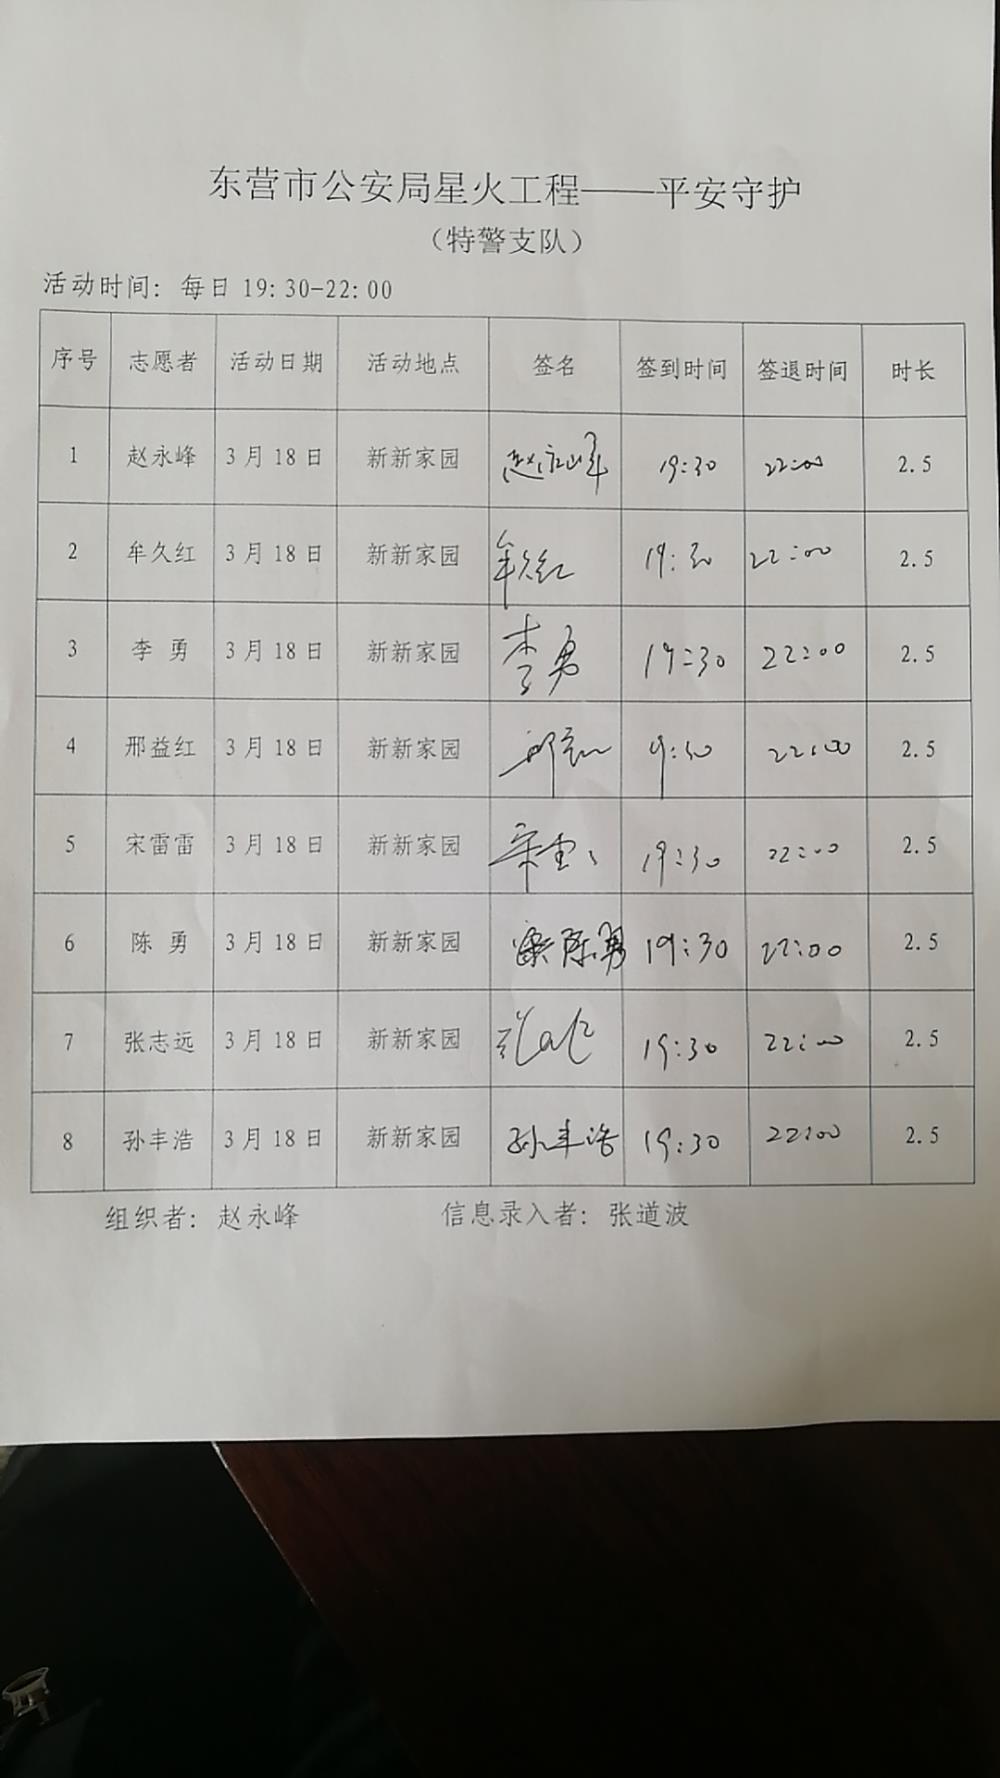 东营市公安局星火工程——平安守护
（特警支队）
活动时间：每日 19:30-22:00
序号 志愿者 活动日期 活动地点 签名 签到时间 签退时间 时长
1 赵永峰 3月18日 新新家园 赵永峰 19:30 22:00 2.5
2 牟久红 3月18日 新新家园 牟久红 19:30 22:00 2.5
3 李 勇 3月18日 新新家园 李勇 19:30 22:00 2.5
4 邢益红 3月18日 新新家园 9:30 22:00 2.5
5 宋雷雷 3月18日 新新家园 19:30 22:00 2.5
6 陈 勇 3月18日 新新家园 陈勇 19:30 22:00 2.5
7 张志远 3月18日 新新家园 19:30 22:00 2.5
8 孙丰浩 3月18日 新新家园 孙丰浩 19:30 22:00 2.5
组织者：赵永峰 信息录入者：张道波